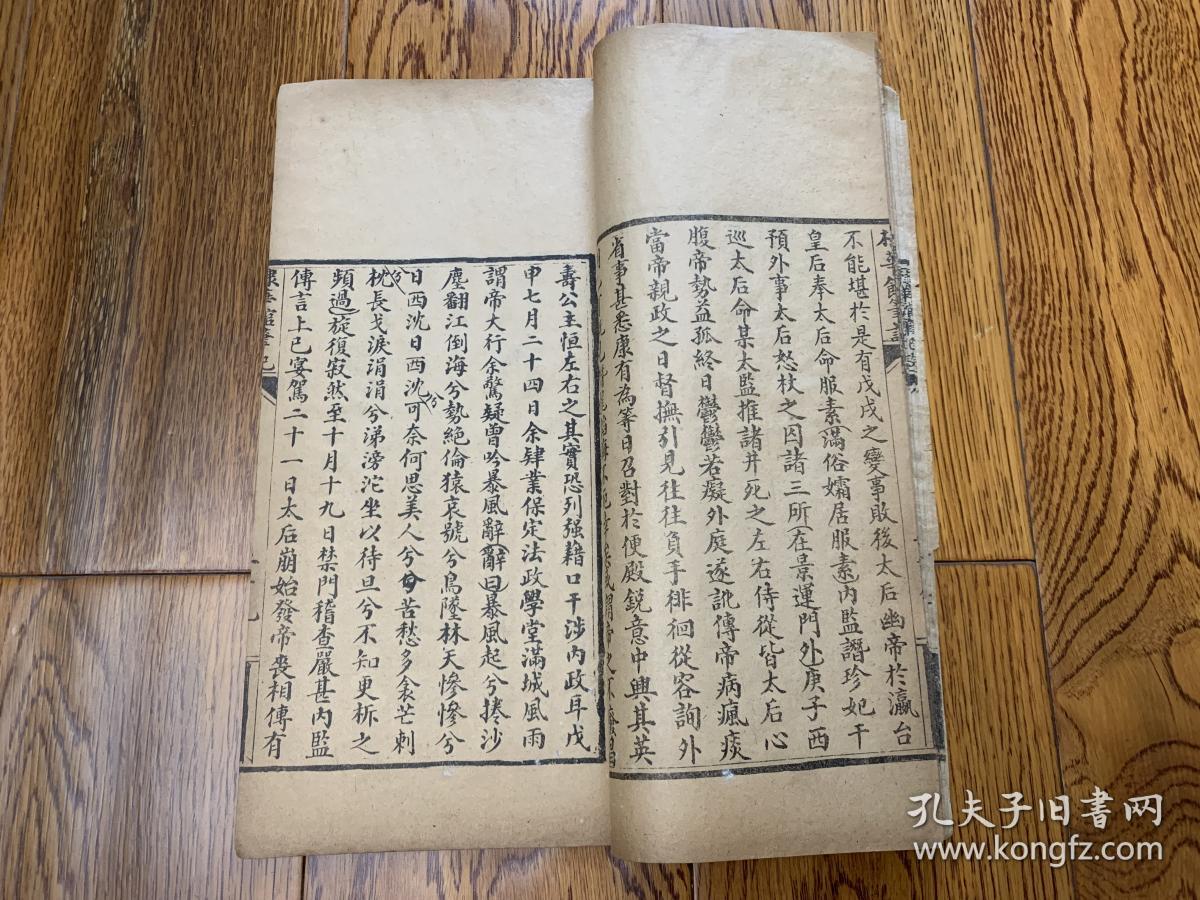 不能堪於是有戊戌之變事敗後太后幽帝於瀛台
皇后奉太后命服素滿俗孀居服素內監譖珍妃干
預外事太后怒杖之囚諸三所在景運門外庚子西
巡太后命某太監推諸井死之左右侍從皆太后心
腹帝勢益孤終日鬱鬱若癡外庭遂訛傳帝病瘋痰
當帝親政之日督撫引見往往負手徘徊從容詢外
省事甚悉康有為等日召對於便殿銳意中興其英
壽公主恒左右之其實恐列强藉口干涉內政耳戊
申七月二十四日余肄業保定法政學堂滿城風雨
謂帝大行余驚疑曾吟暴風辭辭曰暴風起兮捲沙
塵翻江倒海兮勢絕倫猿哀號兮鳥墜林天慘慘兮
日西沈日西沈兮可奈何思美人兮苦愁多衾芒刺
兮枕長戈淚涓涓兮涕滂沱坐以待旦兮不知更柝之
頻過旋復寂然至十月十九日禁門稽查嚴甚內監
傳言上已宴駕二十一日太后崩始發帝喪相傳有
孔夫子旧书网
www.kongfz.com